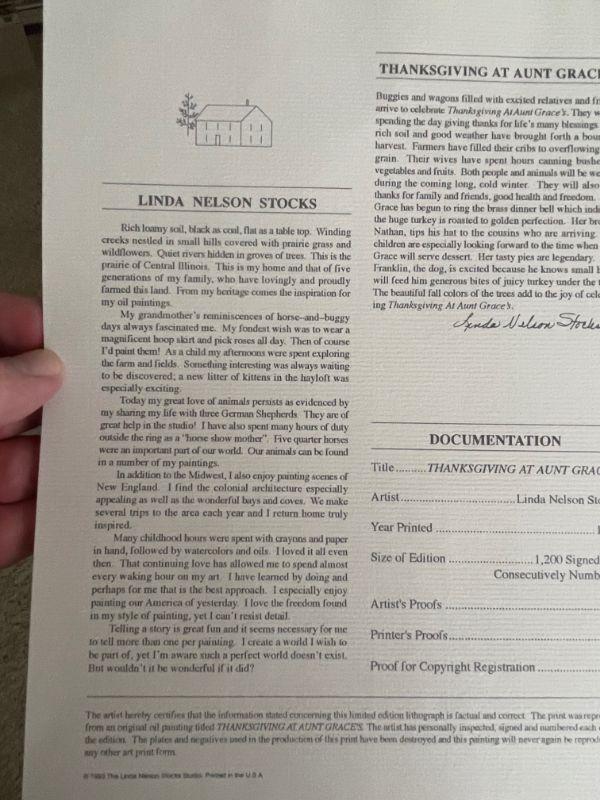 LINDA NELSON STOCKS
Rich loamy soil, black as coal, flat as a table top. Winding
creeks nestled in small hills covered with prairie grass and
wildflowers. Quiet rivers hidden in groves of trees. This is the
prairie of Central Illinois. This is my home and that of five
generations of my family, who have lovingly and proudly
farmed this land. From my heritage comes the inspiration for
my oil paintings.
My grandmother's reminiscences of horse-and-buggy
days always fascinated me. My fondest wish was to wear a
magnificent hoop skirt and pick roses all day. Then of course
I'd paint them! As a child my afternoons were spent exploring
the farm and fields. Something interesting was always waiting
to be discovered; a new litter of kittens in the hayloft was
especially exciting.
Today my great love of animals persists as evidenced by
my sharing my life with three German Shepherds. They are of
great help in the studio! I have also spent many hours of duty
outside the ring as a "horse show mother". Five quarter horses
were an important part of our world. Our animals can be found
in a number of my paintings.
In addition to the Midwest, I also enjoy painting scenes of
New England. I find the colonial architecture especially
appealing as well as the wonderful bays and coves. We make
several trips to the area each year and I return home truly
inspired.
Many childhood hours were spent with crayons and paper
in hand, followed by watercolors and oils. I loved it all even
then. That continuing love has allowed me to spend almost
every waking hour on my art. I have learned by doing and
perhaps for me that is the best approach. I especially enjoy
painting our America of yesterday. I love the freedom found
in my style of painting, yet I can't resist detail.
Telling a story is great fun and it seems necessary for me
to tell more than one per painting. I create a world I wish to
be part of, yet I'm aware such a perfect world doesn't exist.
But wouldn't it be wonderful if it did?
THANKSGIVING AT AUNT GRACE
Buggies and wagons filled with excited relatives and
arrive to celebrate Thanksgiving At Aunt Grace's. They
spending the day giving thanks for life's many blessings
rich soil and good weather have brought forth a
harvest. Farmers have filled their cribs to overflowing
grain. Their wives have spent hours canning
vegetables and fruits. Both people and animals will be
during the coming long, cold winter. They will also
thanks for family and friends, good health and freedom.
Grace has begun to ring the brass dinner bell which
the huge turkey is roasted to golden perfection. Her
Nathan, tips his hat to the cousins who are arriving.
children are especially looking forward to the time when
Grace will serve dessert. Her tasty pies are legendary.
Franklin, the dog, is excited because he knows small
will feed him generous bites of juicy turkey under the
The beautiful fall colors of the trees add to the joy of
ing Thanksgiving At Aunt Grace's.
Linda Nelson Stocks
DOCUMENTATION
Title..........THANKSGIVING AT AUNT GRAC
Artist..................................Linda Nelson
Year Printed
Size of Edition..........................1,200 Signed
Consecutively
Artist's Proofs
Printer's Proofs
Proof for Copyright Registration
The artist hereby certifies that the information stated concerning this limited edition lithograph is factual and correct. The print was
from an original oil painting titled THANKSGIVING AT AUNT GRACE'S. The artist has personally inspected, signed and numbered each
the edition. The plates and negatives used in the production of this print have been destroyed and this painting will never again be
any other art print form.
© 1993 The Linda Nelson Stocks Studio. Printed in the U.S.A.